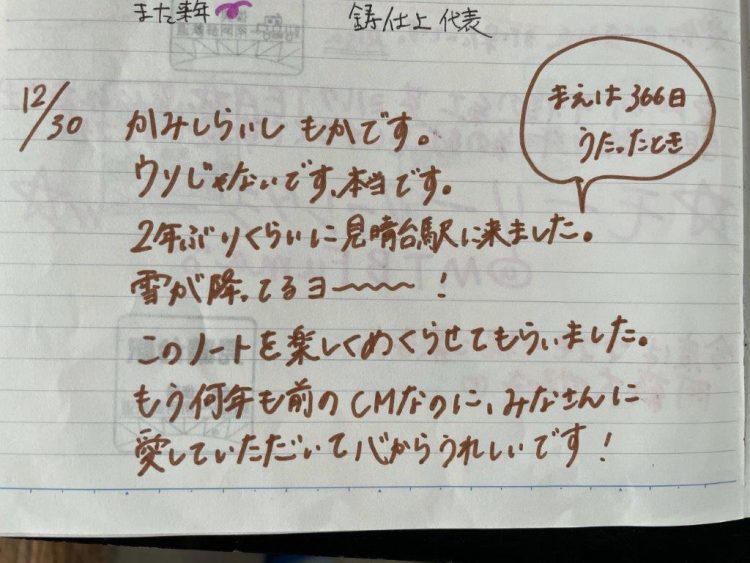 また来年
鋳仕上 代表
12/30
かみしらいし もかです。
ウソじゃないです、本当です。
2年ぶりくらいに見晴台駅に来ました。
まえは366日
うたったとき
雪が降ってるヨ〜〜〜〜!
このノートを楽しくめくらせてもらいました。
もう何年も前のCMなのに、みなさんに
愛していただいて心からうれしいです!